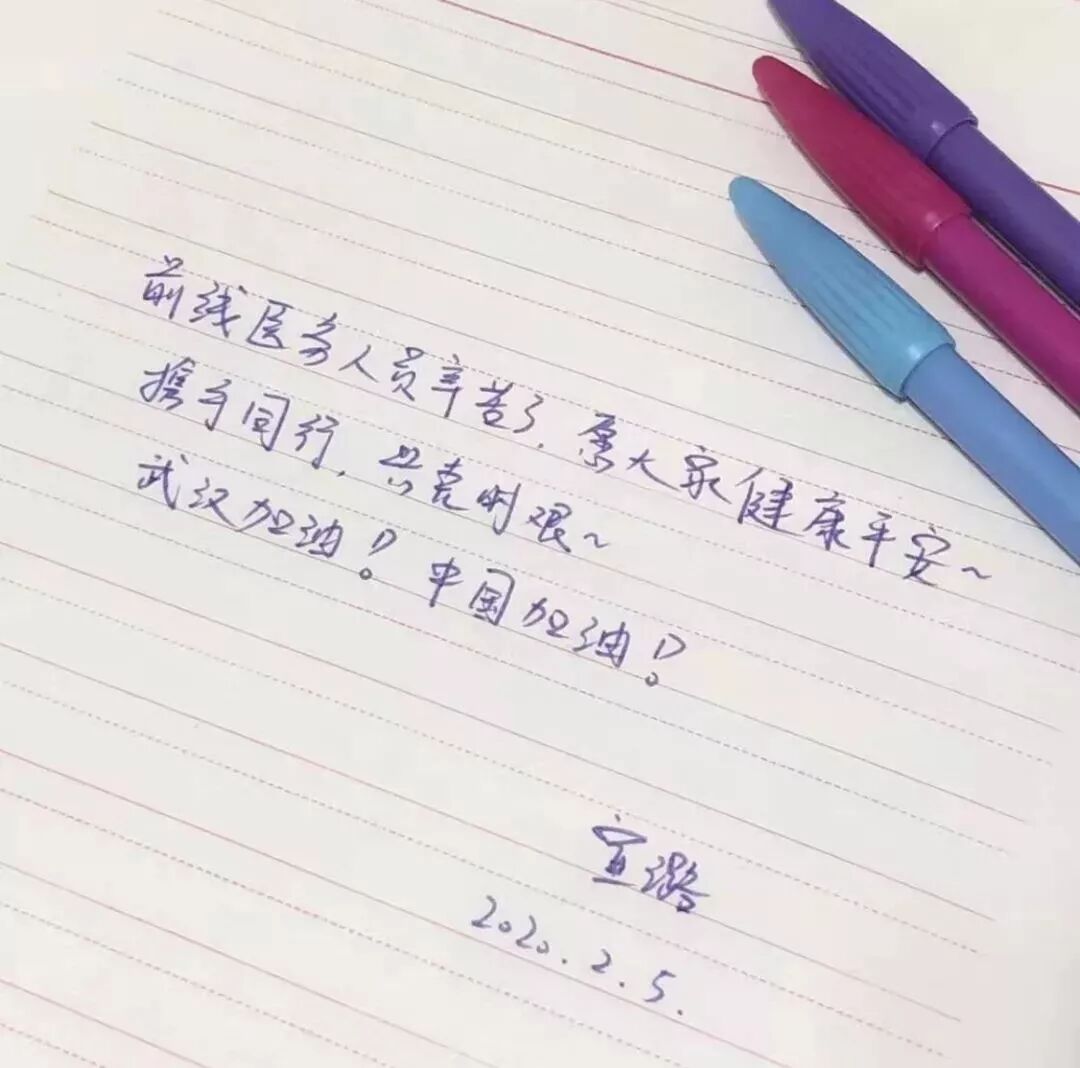 前线医务人员辛苦了,愿大家健康平安~
携手同行,共克时艰~
武汉加油!中国加油!
宣璐
2020.2.5.